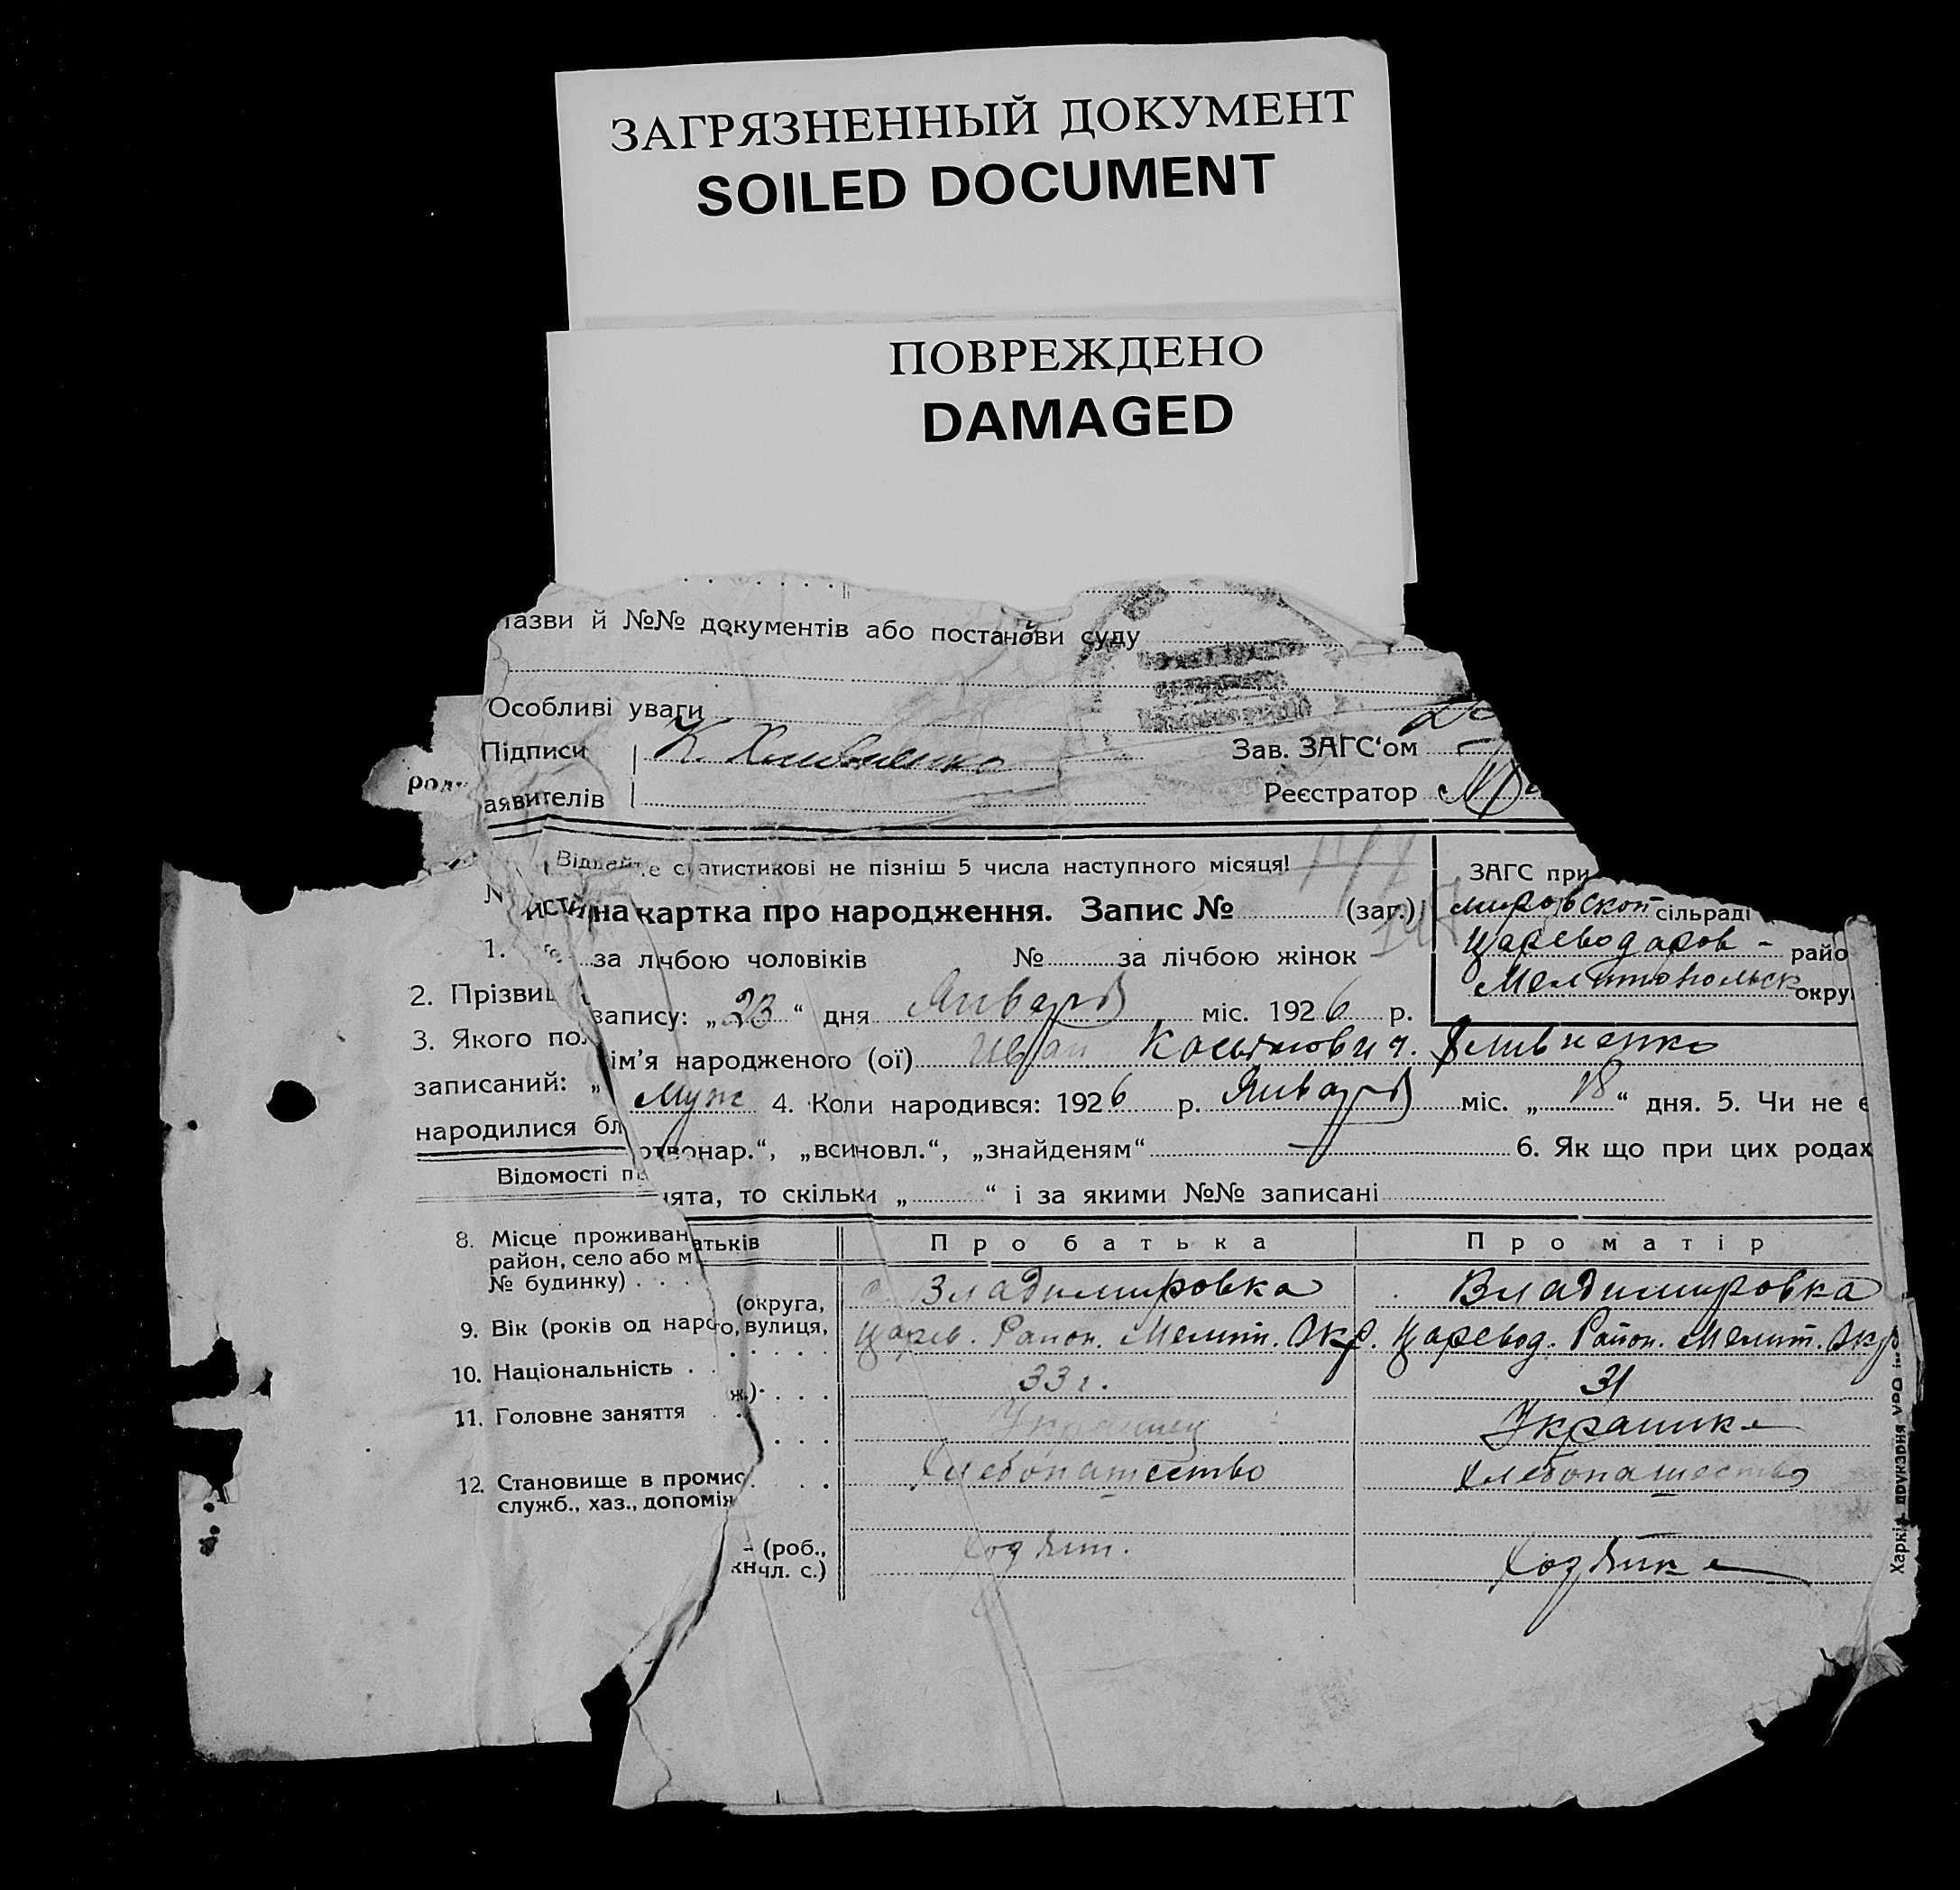 ЗАГРЯЗНЕННЫЙ ДОКУМЕНТ
SOILED DOCUMENT
ПОВРЕЖДЕНО
DAMAGED
азви й №№ документів або постанови суду
Особливі уваги
Підписи К. Хливненко Зав. ЗАГС'ом
аявителів Реєстратор
роди
Відд е статистикові не пізніш 5 числа наступного місяця! ЗАГС при
на картка про народження. Запис № (заг.) мировской сільраді
Цареводаров - райо
1. за лічбою чоловіків № за лічбою жінок Мелитопольск окру
2. Прізвищ
запису: „23“ дня Января міс. 1926 р.
3. Якого по
ім'я народженого (ої) Иван Косьянович. Хливненко
записаний: „
Муж 4. Коли народився: 1926 р. Января міс. „18“ дня. 5. Чи не є
народилися бл
ртвонар.“, „всиновл.“, „знайденям“ 6. Як що при цих родах
Відомості п
ята, то скільки „ “ і за якими №№ записані
атьків Про батька Про матір
8. Місце проживан
район, село або м
№ будинку) . . .
(округа, с. Владимировка Владимировка
о, вулиця, Царев. Район. Мелит. Окр. Царевод. Район. Мелит. Окр
9. Вік (років од наро
ж.) . . . 33 г. 31
10. Національність . Украинец Украинка
11. Головне заняття Хлебопашество Хлебопашество
12. Становище в промис
служб., хаз., допомін
- (роб., Хозяин. Хозяйка
чл. с.)
Харків, друкарня